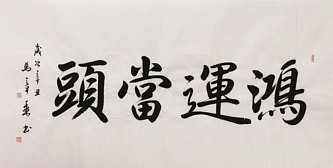 鴻運當頭
歲次辛丑